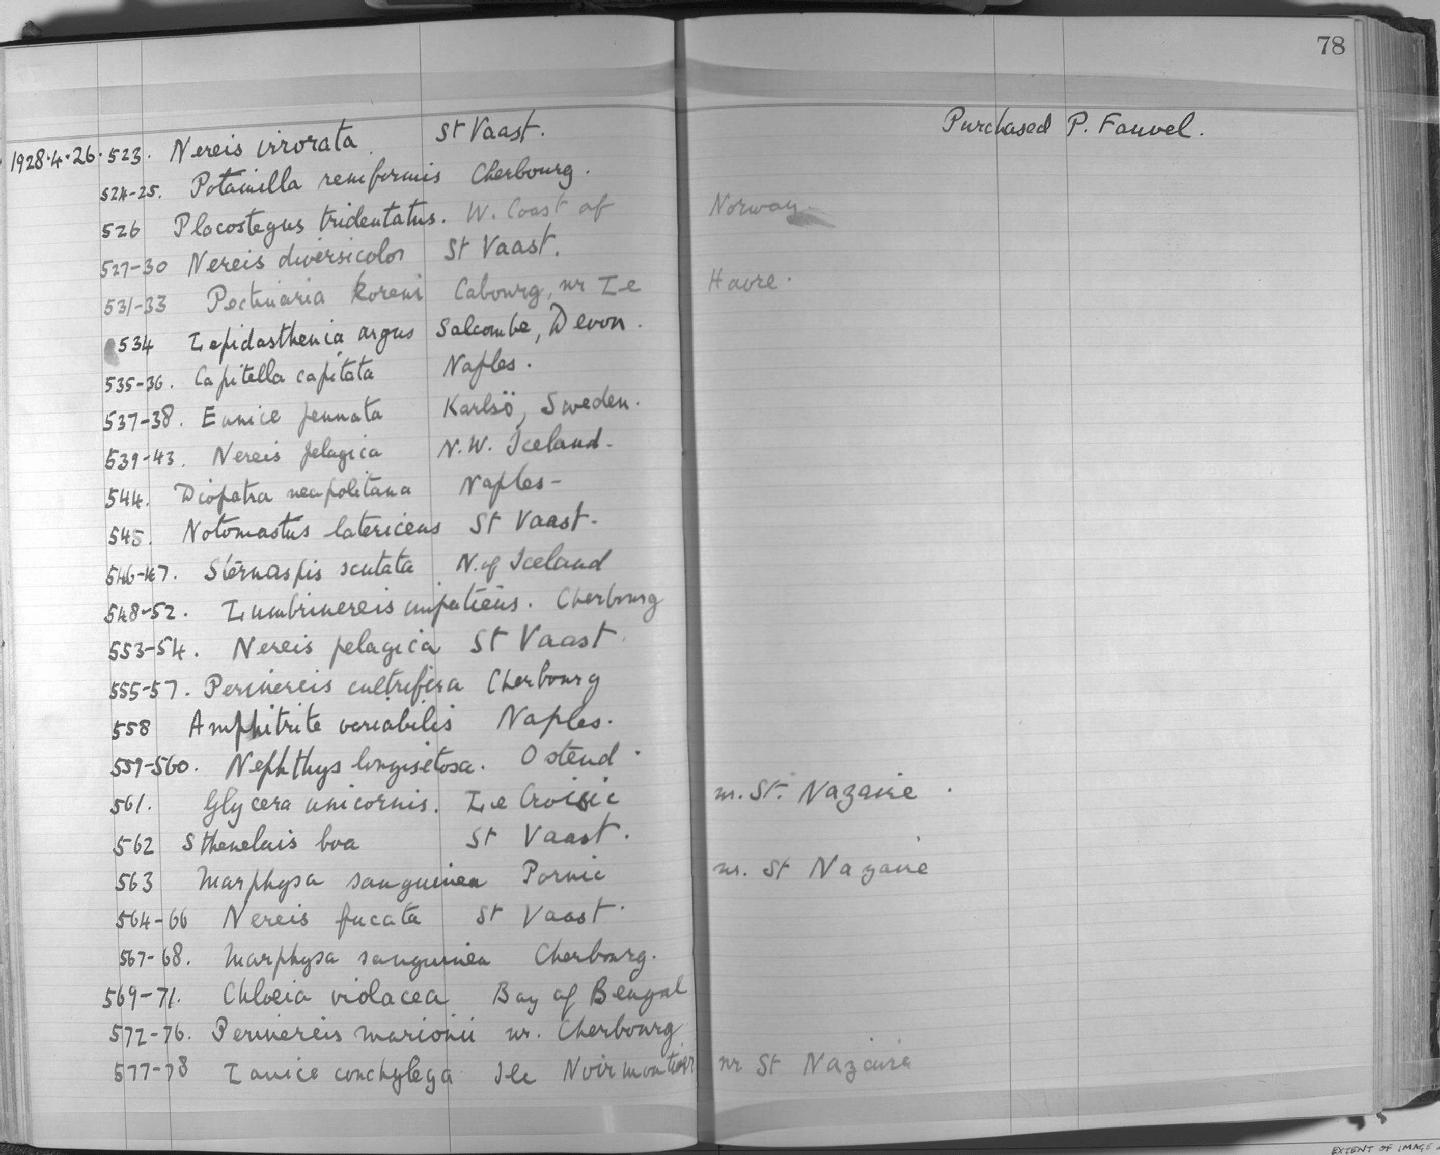 78
Purchased P. Fauvel.
1928.4.26.523. Nereis irrorata. St Vaast.
524-25. Potamilla reniformis Cherbourg.
526 Placostegus tridentatus. W. Coast of Norway.
527-30 Nereis diversicolor St Vaast.
531-33 Pectinaria Koreni Cabourg, nr Le Havre.
534 Lepidasthenia argus Salcombe, Devon.
535-36. Capitella capitata Naples.
537-38. Eunice pennata Karlsö, Sweden.
539-43. Nereis pelagica N.W. Iceland-
544. Diopatra neapolitana Naples-
545. Notomastus latericeus St Vaast.
546-47. Sternaspis scutata N. of Iceland
548-52. Lumbrinereis impatiens. Cherbourg
553-54. Nereis pelagica St Vaast.
555-57. Perinereis cultrifera Cherbourg
558 Amphitrite variabilis Naples.
559-560. Nephthys longisetosa. Ostend.
561. Glycera unicornis. Le Croisic nr. St. Nazaire.
562 Sthenelais boa St Vaast.
563 Marphysa sanguinea Pornic nr. St Nazaire
564-66 Nereis fucata St Vaast.
567-68. Marphysa sanguinea Cherbourg.
569-71. Chloeia violacea Bay of Bengal
572-76. Perinereis marionii nr. Cherbourg
577-78 Lanice conchylega Ile Noirmoutier nr St Nazaire
EXTENT OF IMAGE